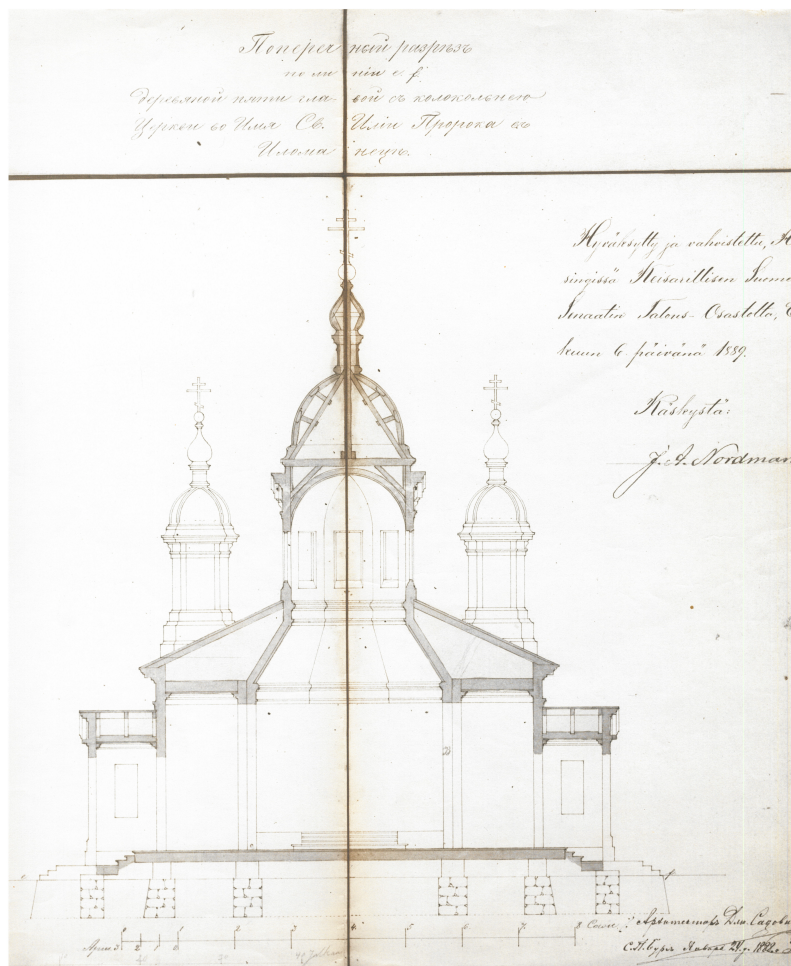 Поперечный разрѣзъ
по линіи e f
деревяной пяти главой съ колокольнею
Церкви во Имя Св. Иліи Пророка въ
Иломанецъ.
Hyväksytty ja vahvistettu, H
singissä Keisarillisen Suomen
Senaatin Talous-Osastolta,
kuun 6 päivänä 1889.
Käskystä:
J. A. Nordman
e f
Арши 3 2 1 0 1 2 3 4 5 6 7 8 Сажен
Архитекторъ
С.П.Бургъ